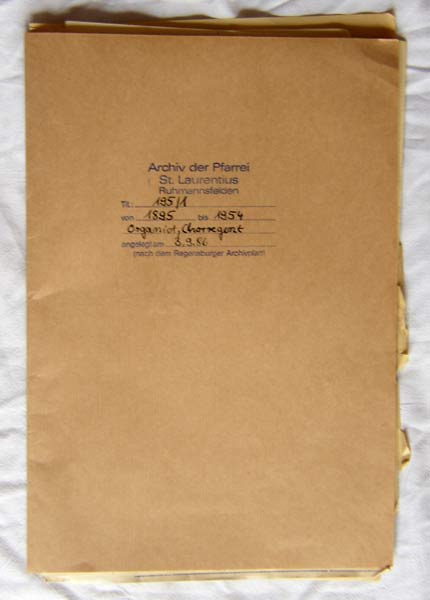 Archiv der Pfarrei
St. Laurentius
Ruhmannsfelden
Tit.: 195/1
von 1895 bis 1954
Organist, Chorregent
angelegt am 3.9.86
(nach dem Regensburger Archivplan)